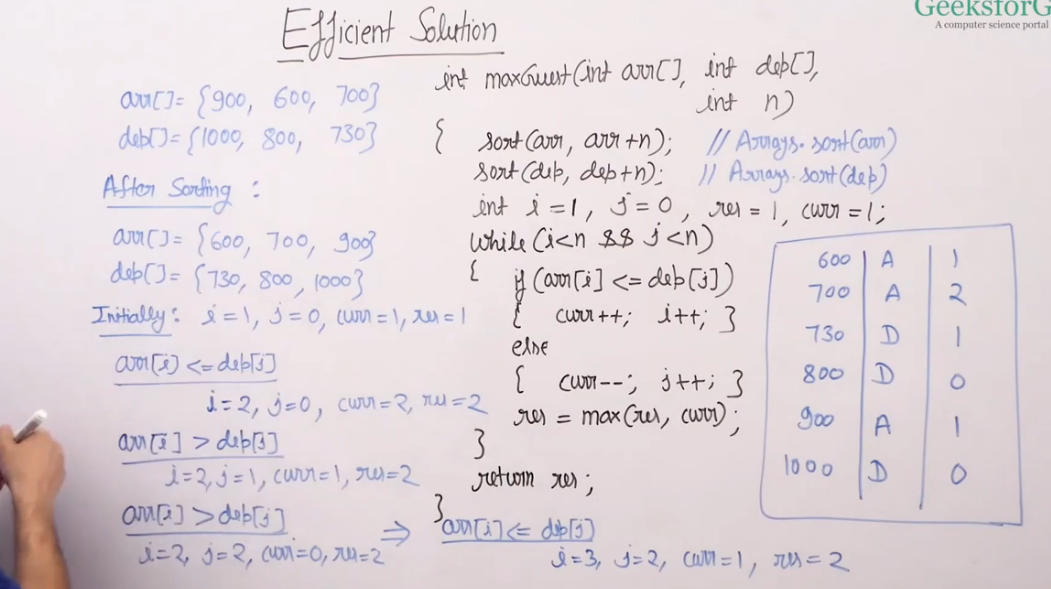 GeeksforG
A computer science portal
Efficient Solution
arr[]= {900, 600, 700}
dep[]= {1000, 800, 730}
After Sorting :
arr[]= {600, 700, 900}
dep[]= {730, 800, 1000}
Initially: i=1, j=0, curr=1, res=1
arr[i] <= dep[j]
i=2, j=0, curr=2, res=2
arr[i] > dep[j]
i=2, j=1, curr=1, res=2
arr[i] > dep[j]
i=2, j=2, curr=0, res=2
⇒ arr[i] <= dep[j]
i=3, j=2, curr=1, res=2
int maxGuest(int arr[], int dep[],
int n)
{ sort(arr, arr+n); // Arrays.sort(arr)
sort(dep, dep+n); // Arrays.sort(dep)
int i=1, j=0, res=1, curr=1;
while(i<n && j<n)
{ if(arr[i] <= dep[j])
{ curr++; i++; }
else
{ curr--; j++; }
res = max(res, curr);
}
return res;
}
600 A 1
700 A 2
730 D 1
800 D 0
900 A 1
1000 D 0